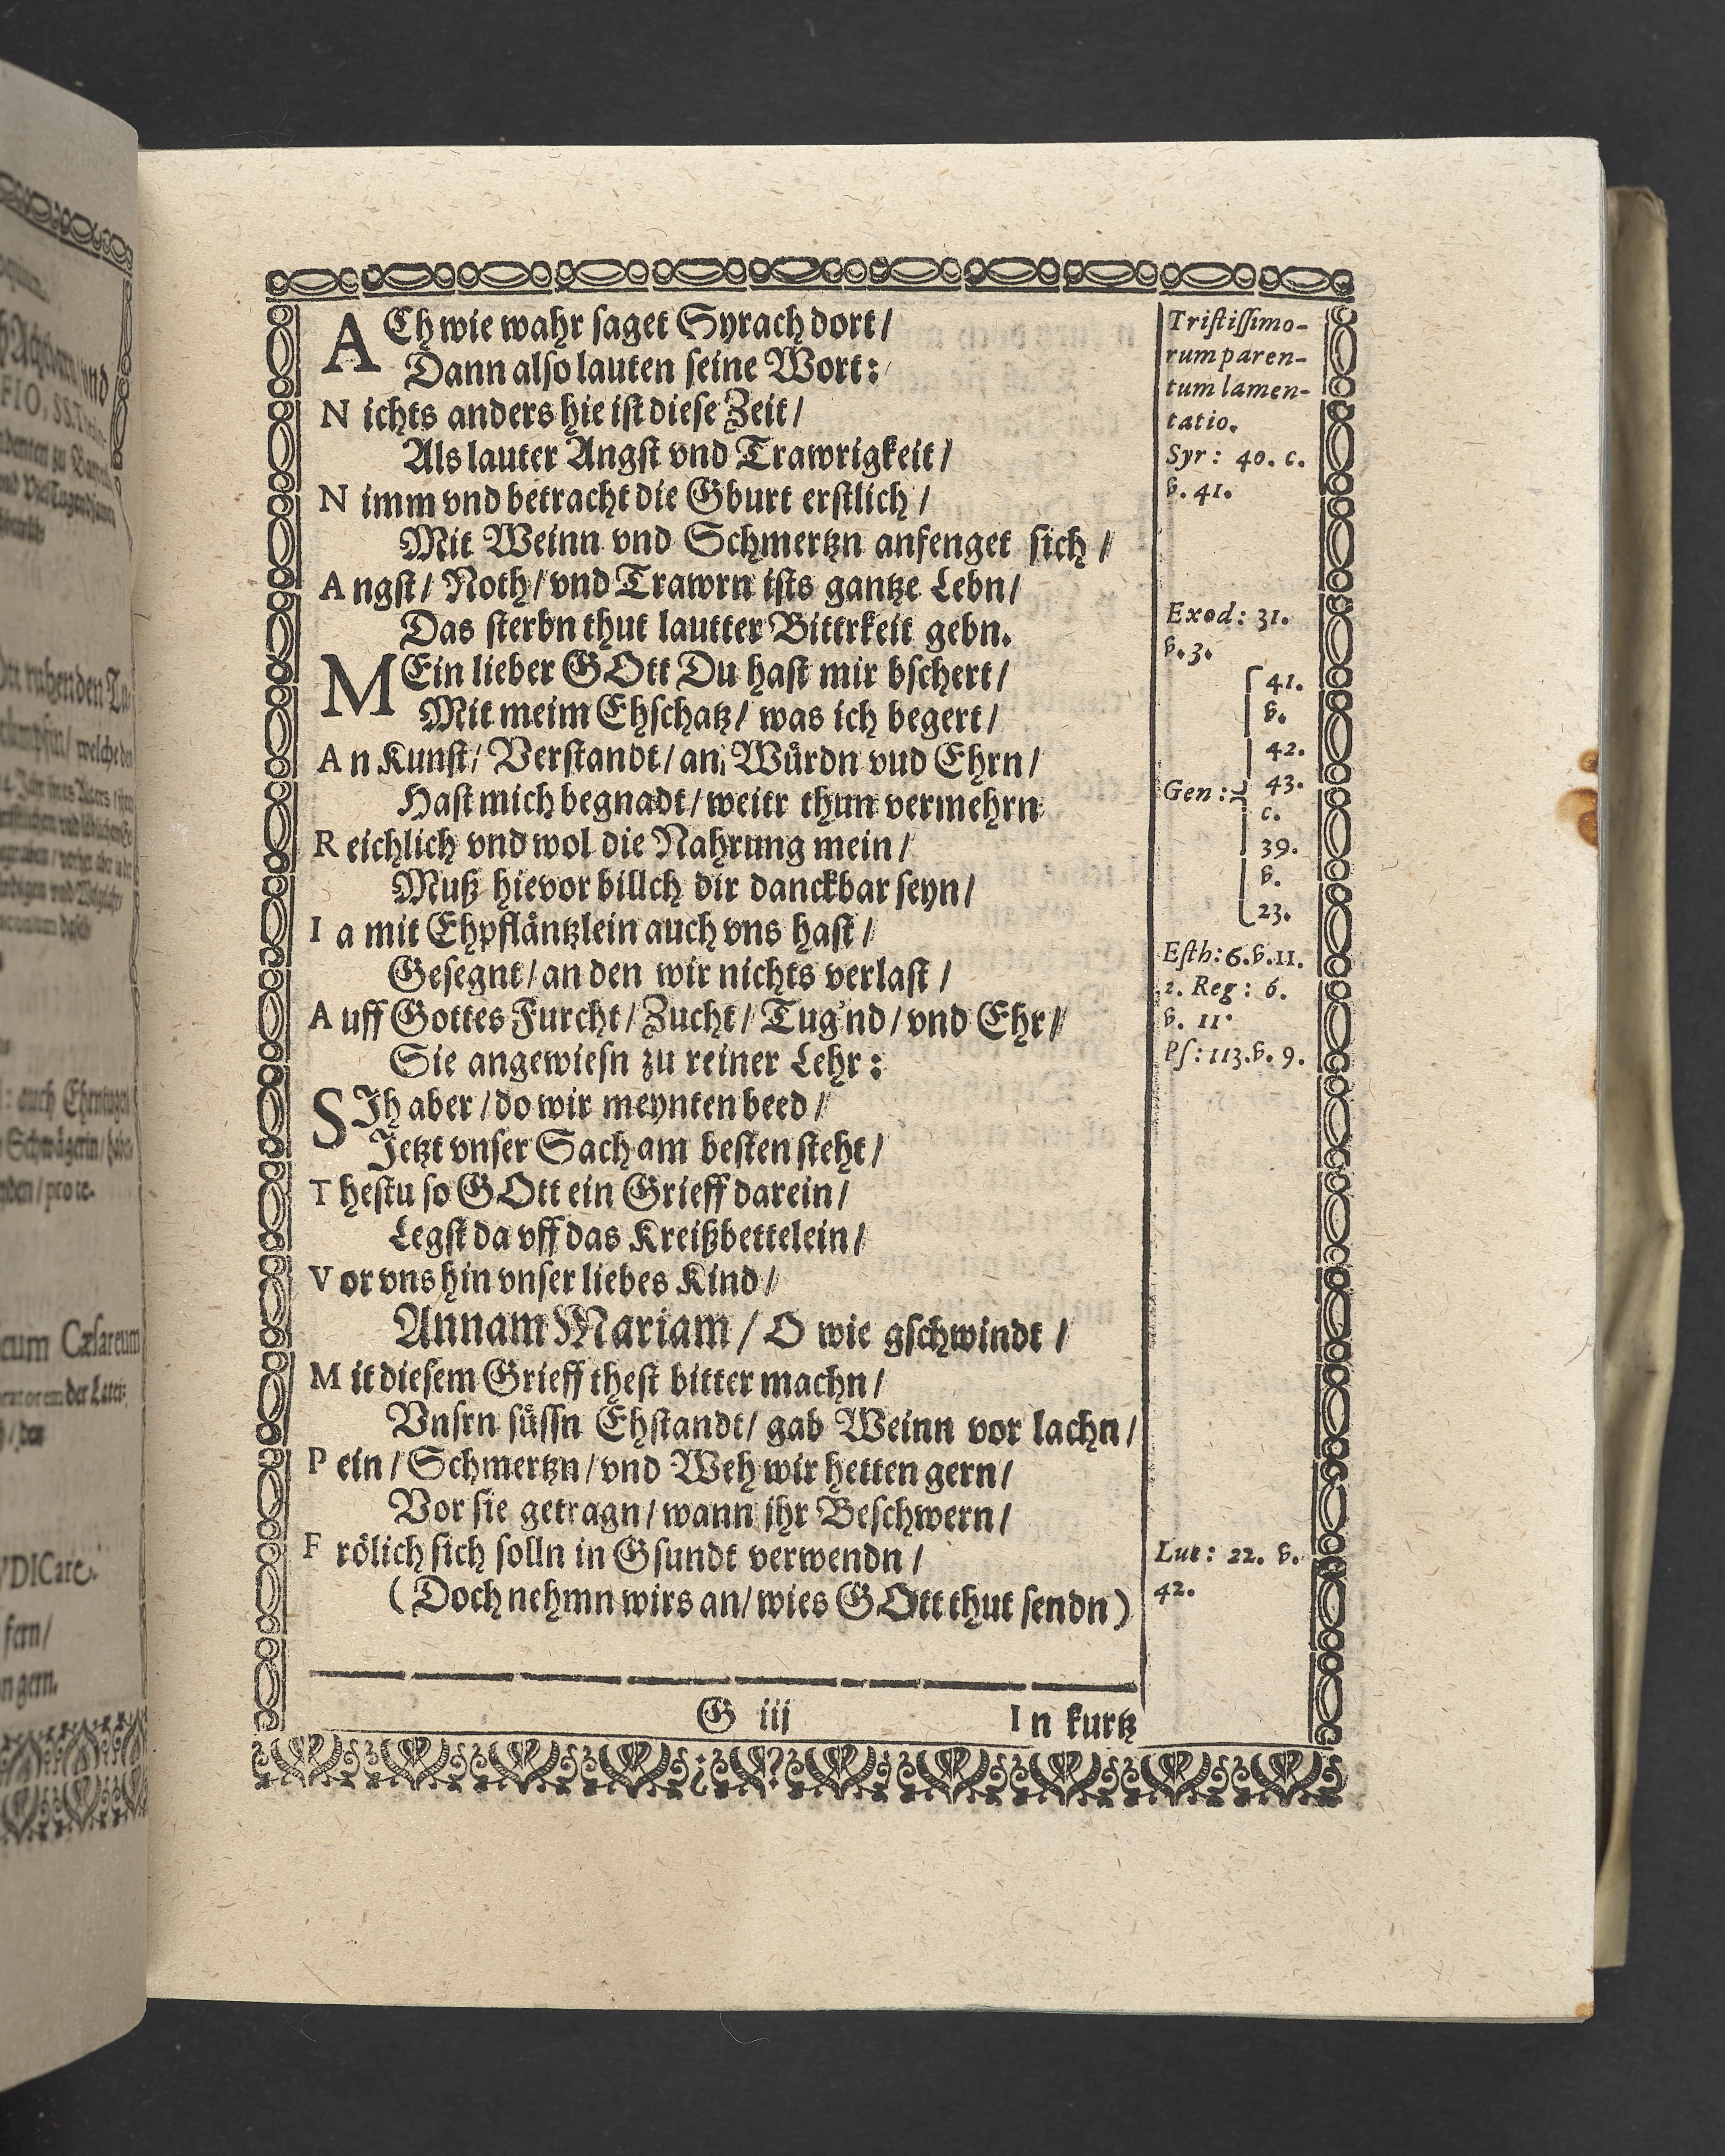 ACh wie wahr saget Syrach dort/
Dann also lauten seine Wort:
Nichts anders hie ist diese Zeit/
Als lauter Angst vnd Trawrigkeit/
Nimm vnd betracht die Gburt erstlich/
Mit Weinn vnd Schmertzn anfenget sich/
Angst/ Noth/ vnd Trawrn ists gantze Lebn/
Das sterbn thut lautter Bittrkeit gebn.
MEin lieber GOtt Du hast mir bschert/
Mit meim Ehschatz/ was ich begert/
An Kunst/ Verstandt/ an Würdn vud Ehrn/
Hast mich begnadt/ weitr thun vermehrn
Reichlich vnd wol die Nahrung mein/
Muß hievor billch dir danckbar seyn/
Ia mit Ehpfläntzlein auch vns hast/
Gesegnt/ an den wir nichts verlast/
Auff Gottes Furcht/ Zucht/ Tug'nd/ vnd Ehr/
Sie angewiesn zu reiner Lehr:
SJh aber/ do wir meynten beed/
Jetzt vnser Sach am besten steht/
Thestu so GOtt ein Grieff darein/
Legst da vff das Kreißbettelein/
Vor vns hin vnser liebes Kind/
Annam Mariam/ O wie gschwindt/
Mit diesem Grieff thest bitter machn/
Vnsrn süssn Ehstandt/ gab Weinn vor lachn/
Pein/ Schmertzn/ vnd Weh wir hetten gern/
Vor sie getragn/ wann ihr Beschwern/
Frölich sich solln in Gsundt verwendn/
(Doch nehmn wirs an/ wies GOtt thut sendn)
G iij
In kurtz
Tristissimo-
rum paren-
tum lamen-
tatio.
Syr: 40. c.
v. 41.
Exod: 31.
v. 3.
41.
v.
42.
Gen: 43.
c.
39.
v.
23.
Esth: 6. v. 11.
2. Reg: 6.
v. 11.
Ps: 113. v. 9.
Luc: 22. v.
42.